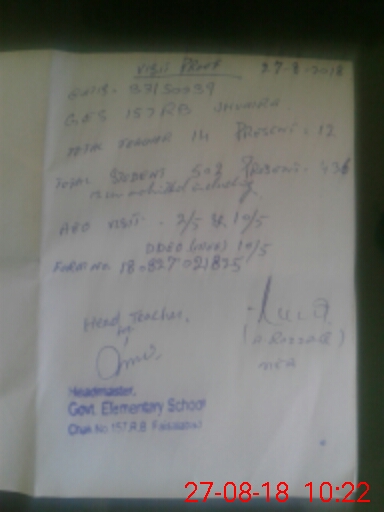 VISIT PROOF 27-8-2018
EMIS: 33130039
GES 157 RB JHUMRA
TOTAL TEACHER 14 PRESENT = 12
TOTAL STUDENT 503 PRESENT = 436
AEO VISIT . 2/5 & 10/5
DDEO 10/5
FORM No. 18-827021825
Head Teacher,
Headmaster,
Govt. Elementary School
Chak No 157 R.B Faisalabad
MEA
27-08-18 10:22